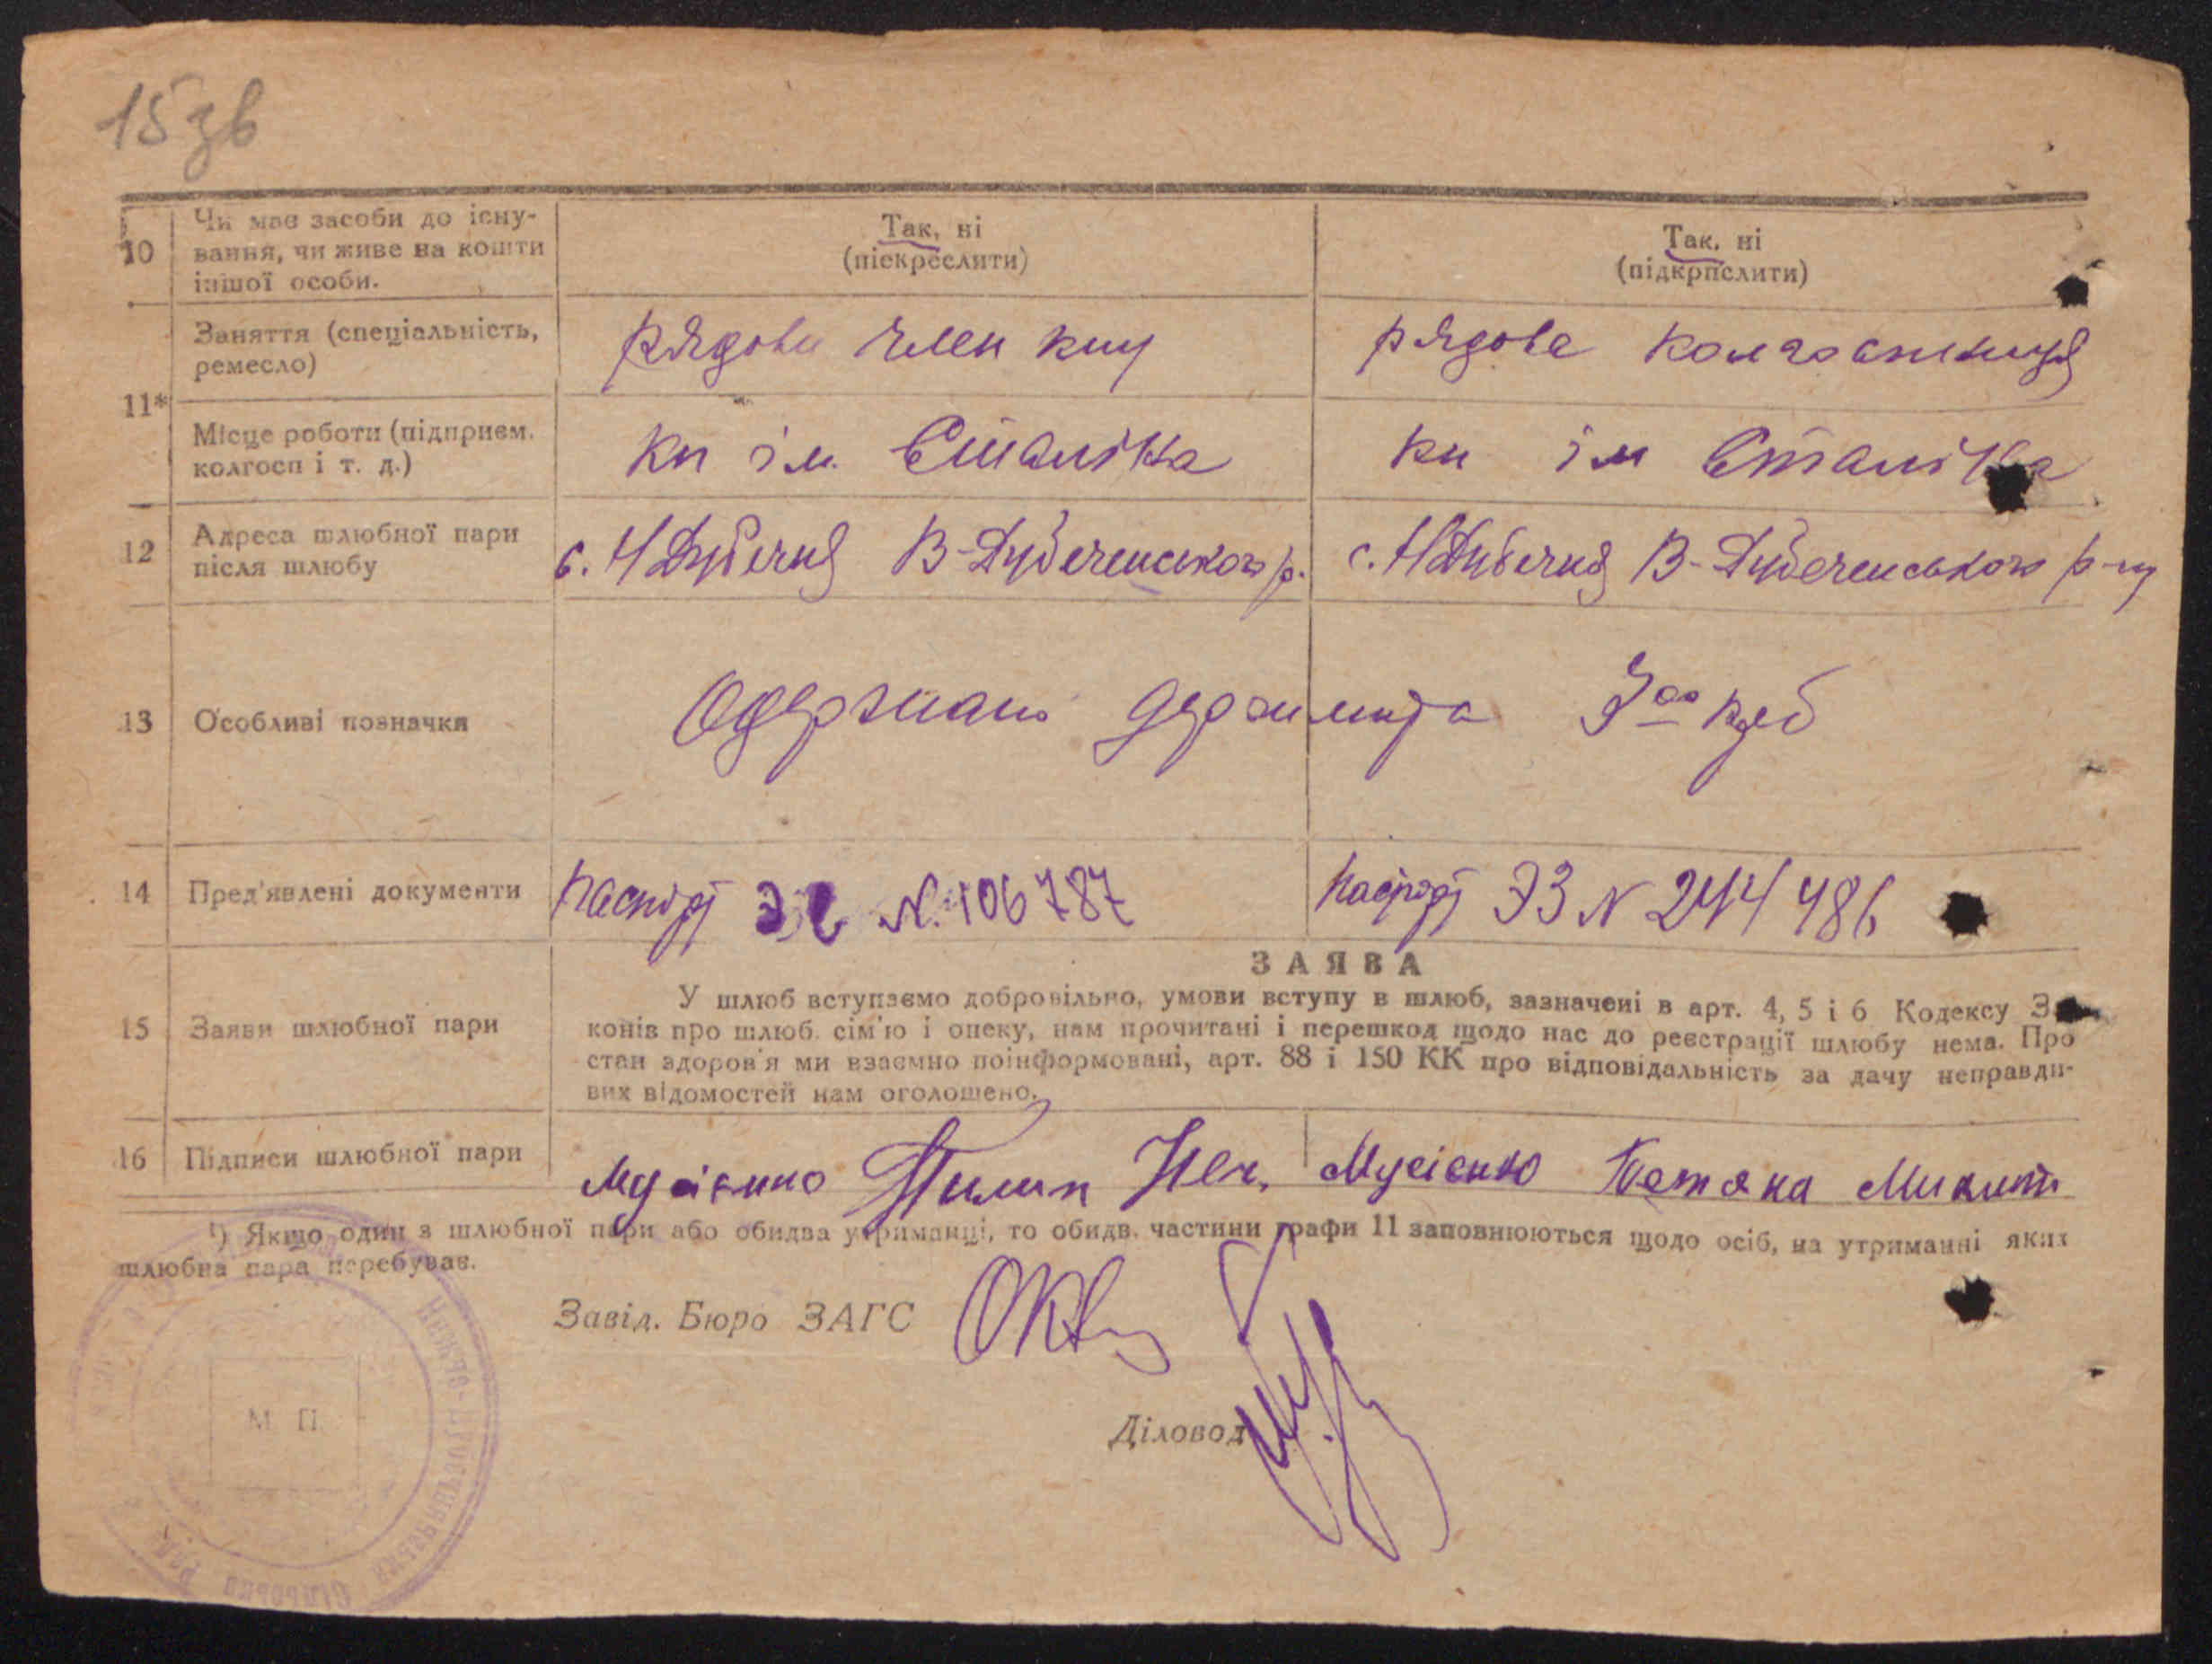 15зв
10 Чи має засоби до існу-
вання, чи живе на кошти
іншої особи.
Так, ні
(піекреслити)
Так, ні
(підкрпслити)
11*
Заняття (спеціальність,
ремесло)
Рядови член кпу
рядова колгоспниця
Місце роботи (підприєм.
колгосп і т. д.)
кп ім. Сталіна
кп ім Сталіна
12 Адреса шлюбної пари
після шлюбу
с. НДубечня В-Дубеченського р.
с. НДубечня В-Дубеченського р-ну
13 Особливі позначки
14 Пред'явлені документи
Паспорт N. 106787
паспорт ЭЗ N 244486
ЗАЯВА
15 Заяви шлюбної пари
У шлюб вступаємо добровільно, умови вступу в шлюб, зазначені в арт. 4, 5 і 6 Кодексу За-
конів про шлюб. сім'ю і опеку, нам прочитані і перешкод щодо нас до реєстрації шлюбу нема. Про
стан здоров'я ми взаємно поінформовані, арт. 88 і 150 КК про відповідальність за дачу неправди-
вих відомостей нам оголошено.
16 Підписи шлюбної пари
Мусієнко Пилип
Мусієнко Тетяна Микит
¹) Якщо один з шлюбної пари або обидва утриманці, то обидв. частини графи 11 заповнюються щодо осіб, на утриманні яких
шлюбна пара перебуває.
Завід. Бюро ЗАГС
М П
Діловод